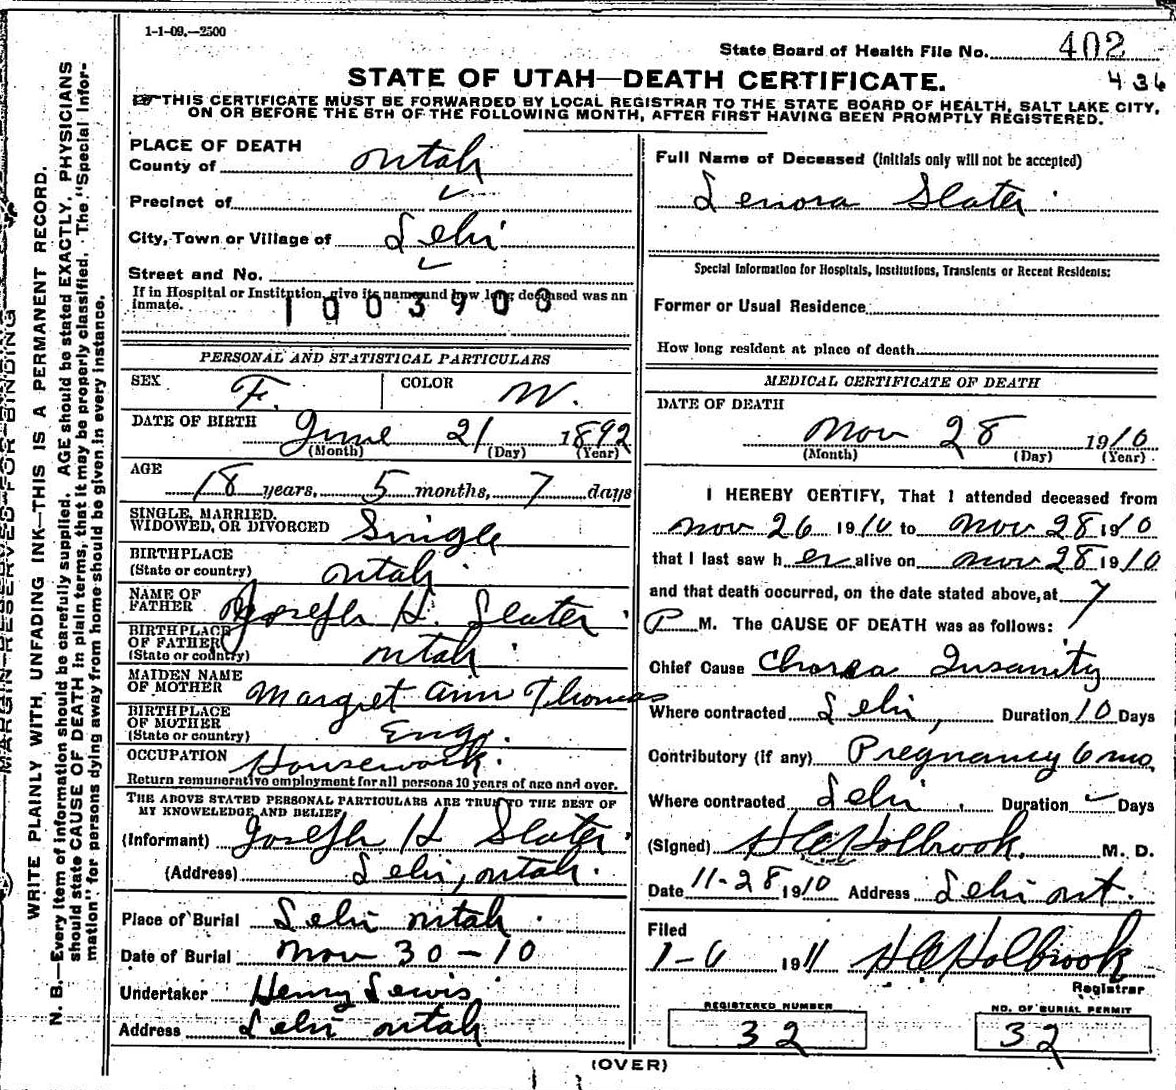 1-1-09.—2500
State Board of Health File No. 402
STATE OF UTAH—DEATH CERTIFICATE.
436
THIS CERTIFICATE MUST BE FORWARDED BY LOCAL REGISTRAR TO THE STATE BOARD OF HEALTH, SALT LAKE CITY,
ON OR BEFORE THE 5TH OF THE FOLLOWING MONTH, AFTER FIRST HAVING BEEN PROMPTLY REGISTERED.
MARGIN RESERVED FOR BINDING
WRITE PLAINLY WITH UNFADING INK—THIS IS A PERMANENT RECORD.
N. B.—Every item of information should be carefully supplied. AGE should be stated EXACTLY. PHYSICIANS
should state CAUSE OF DEATH in plain terms, that it may be properly classified. The "Special Infor-
mation" for persons dying away from home should be given in every instance.
PLACE OF DEATH
County of Utah
Precinct of
City, Town or Village of Lehi
Street and No.
If in Hospital or Institution, give its name and how long deceased was an
inmate.
1003908
PERSONAL AND STATISTICAL PARTICULARS
SEX F. COLOR W.
DATE OF BIRTH June 21 1892
(Month) (Day) (Year)
AGE
18 years, 5 months, 7 days
SINGLE, MARRIED,
WIDOWED, OR DIVORCED Single
BIRTHPLACE
(State or country) Utah
NAME OF
FATHER Joseph H. Slater
BIRTHPLACE
OF FATHER
(State or country) Utah
MAIDEN NAME
OF MOTHER Margret Ann Thomas
BIRTHPLACE
OF MOTHER
(State or country) Eng.
OCCUPATION Housework.
Return remunerative employment for all persons 10 years of age and over.
THE ABOVE STATED PERSONAL PARTICULARS ARE TRUE TO THE BEST OF
MY KNOWLEDGE AND BELIEF
(Informant) Joseph H Slater
(Address) Lehi, Utah.
Place of Burial Lehi Utah.
Date of Burial Nov 30-10
Undertaker Henry Lewis
Address Lehi Utah
Full Name of Deceased (Initials only will not be accepted)
Lenora Slater
Special Information for Hospitals, Institutions, Transients or Recent Residents:
Former or Usual Residence
How long resident at place of death
MEDICAL CERTIFICATE OF DEATH
DATE OF DEATH
Nov 28 1910
(Month) (Day) (Year)
I HEREBY CERTIFY, That I attended deceased from
Nov 26 1910 to Nov 28 1910
that I last saw her alive on Nov 28 1910
and that death occurred, on the date stated above, at 7
P M. The CAUSE OF DEATH was as follows:
Chief Cause Chorea Insanity
Where contracted Lehi, Duration 10 Days
Contributory (if any) Pregnancy 6 mo
Where contracted Lehi. Duration Days
(Signed) H C Holbrook. M. D.
Date 11-28 1910 Address Lehi Ut.
Filed
1-6 1911 H C Holbrook
Registrar
REGISTERED NUMBER
32
NO. OF BURIAL PERMIT
32
(OVER)